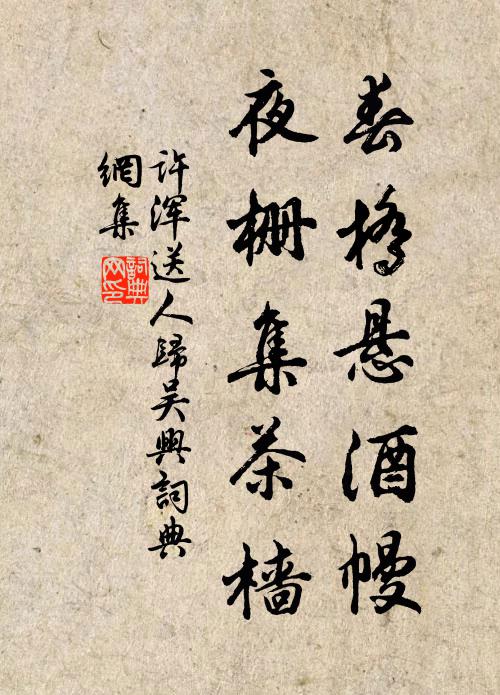 春橋悬酒幔
夜栅集茶檣
许渾送人歸吴興詞典
網集
詞典
网印